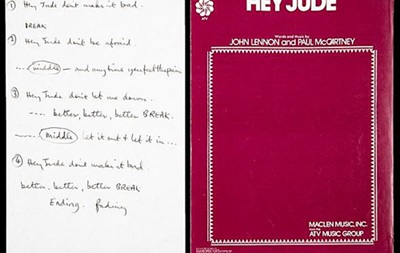 ① Hey Jude dont make it bad.
BREAK
② Hey Jude don't be afraid.
.... middle - and any time you feel the pain
③ Hey Jude don't let me down.
---- better, better, better BREAK.
---- middle let it out & let it in ...
④ Hey Jude don't make it bad
better, better, better BREAK
Ending. fading
ATV
HEY JUDE
Words and Music by
JOHN LENNON and PAUL McCARTNEY
MACLEN MUSIC, INC.
ATV MUSIC GROUP